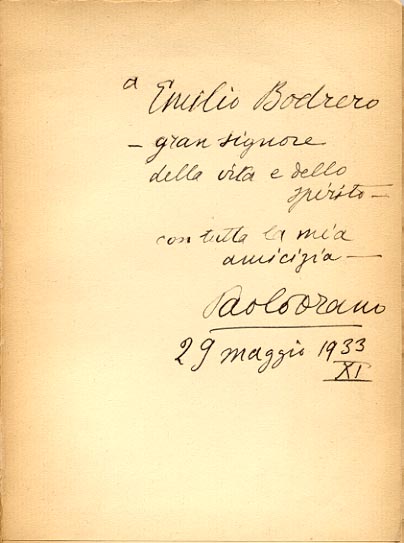 a Emilio Bodrero
— gran signore
della vita e dello
spirito —
con tutta la mia
amicizia —
Paolo Orano
29 maggio 1933
XI